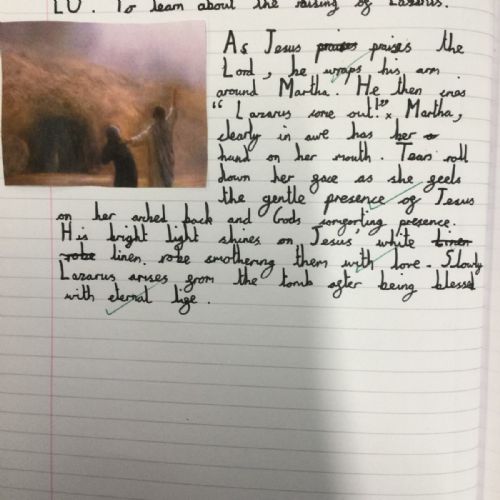 LO: To learn about the raising of Lazarus.
As Jesus praises praises the
Lord, he wraps his arm
around Martha. He then cries
"Lazarus come out!" Martha,
clearly in awe has her
hand on her mouth. Tears roll
down her face as she feels
the gentle presence of Jesus
on her arched back and Gods comforting presence.
His bright light shines on Jesus' white linen
robe linen robe smothering them with love. Slowly
Lazarus arises from the tomb after being blessed
with eternal life.